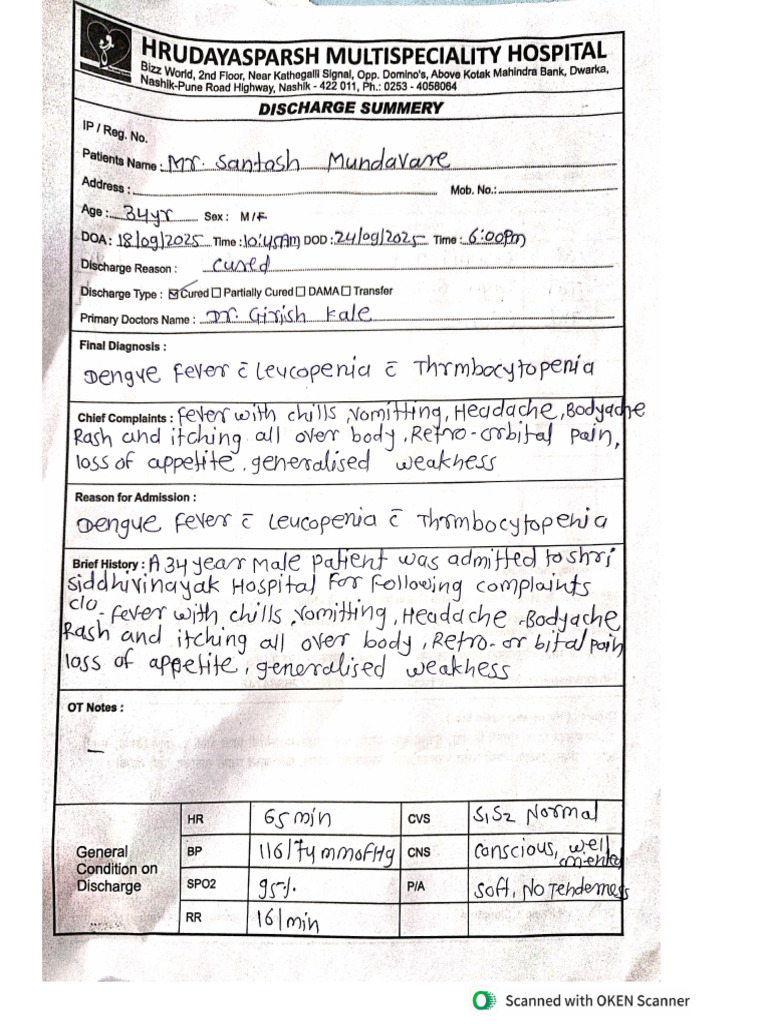 HRUDAYASPARSH MULTISPECIALITY HOSPITAL
Bizz World, 2nd Floor, Near Kathegalli Signal, Opp. Domino's, Above Kotak Mahindra Bank, Dwarka,
Nashik-Pune Road Highway, Nashik - 422 011, Ph.: 0253 - 4058064
DISCHARGE SUMMERY
IP / Reg. No.
Patients Name : Mr. Santosh Mundavare
Address : Mob. No.:
Age : 34yr Sex : M / F
DOA : 18/09/2025 Time : 10:45AM DOD : 24/09/2025 Time : 6:00Pm
Discharge Reason : cured
Discharge Type : ☑ Cured ☐ Partially Cured ☐ DAMA ☐ Transfer
Primary Doctors Name : Dr. Girish Kale
Final Diagnosis :
Dengue Fever c̄ Leucopenia c̄ Thrmbocytopenia
Chief Complaints : Fever with chills, vomitting, Headache, Bodyache
Rash and itching all over body, Retro-orbital Pain,
loss of appetite, generalised weakness
Reason for Admission :
Dengue Fever c̄ Leucopenia c̄ Thrmbocytopenia
Brief History : A 34 year Male patient was admitted to shri
siddhivinayak Hospital For Following complaints
c/o - fever with chills, vomitting, Headache, Bodyache
Rash and itching all over body, Retro-orbital pain
loss of appetite, generalised weakness
OT Notes :
—
General Condition on Discharge
HR 65 min CVS S1S2 Normal
BP 116/74 mmofHg CNS conscious, well oriented
SPO2 95% P/A Soft, No Tenderness
RR 16/min
Scanned with OKEN Scanner